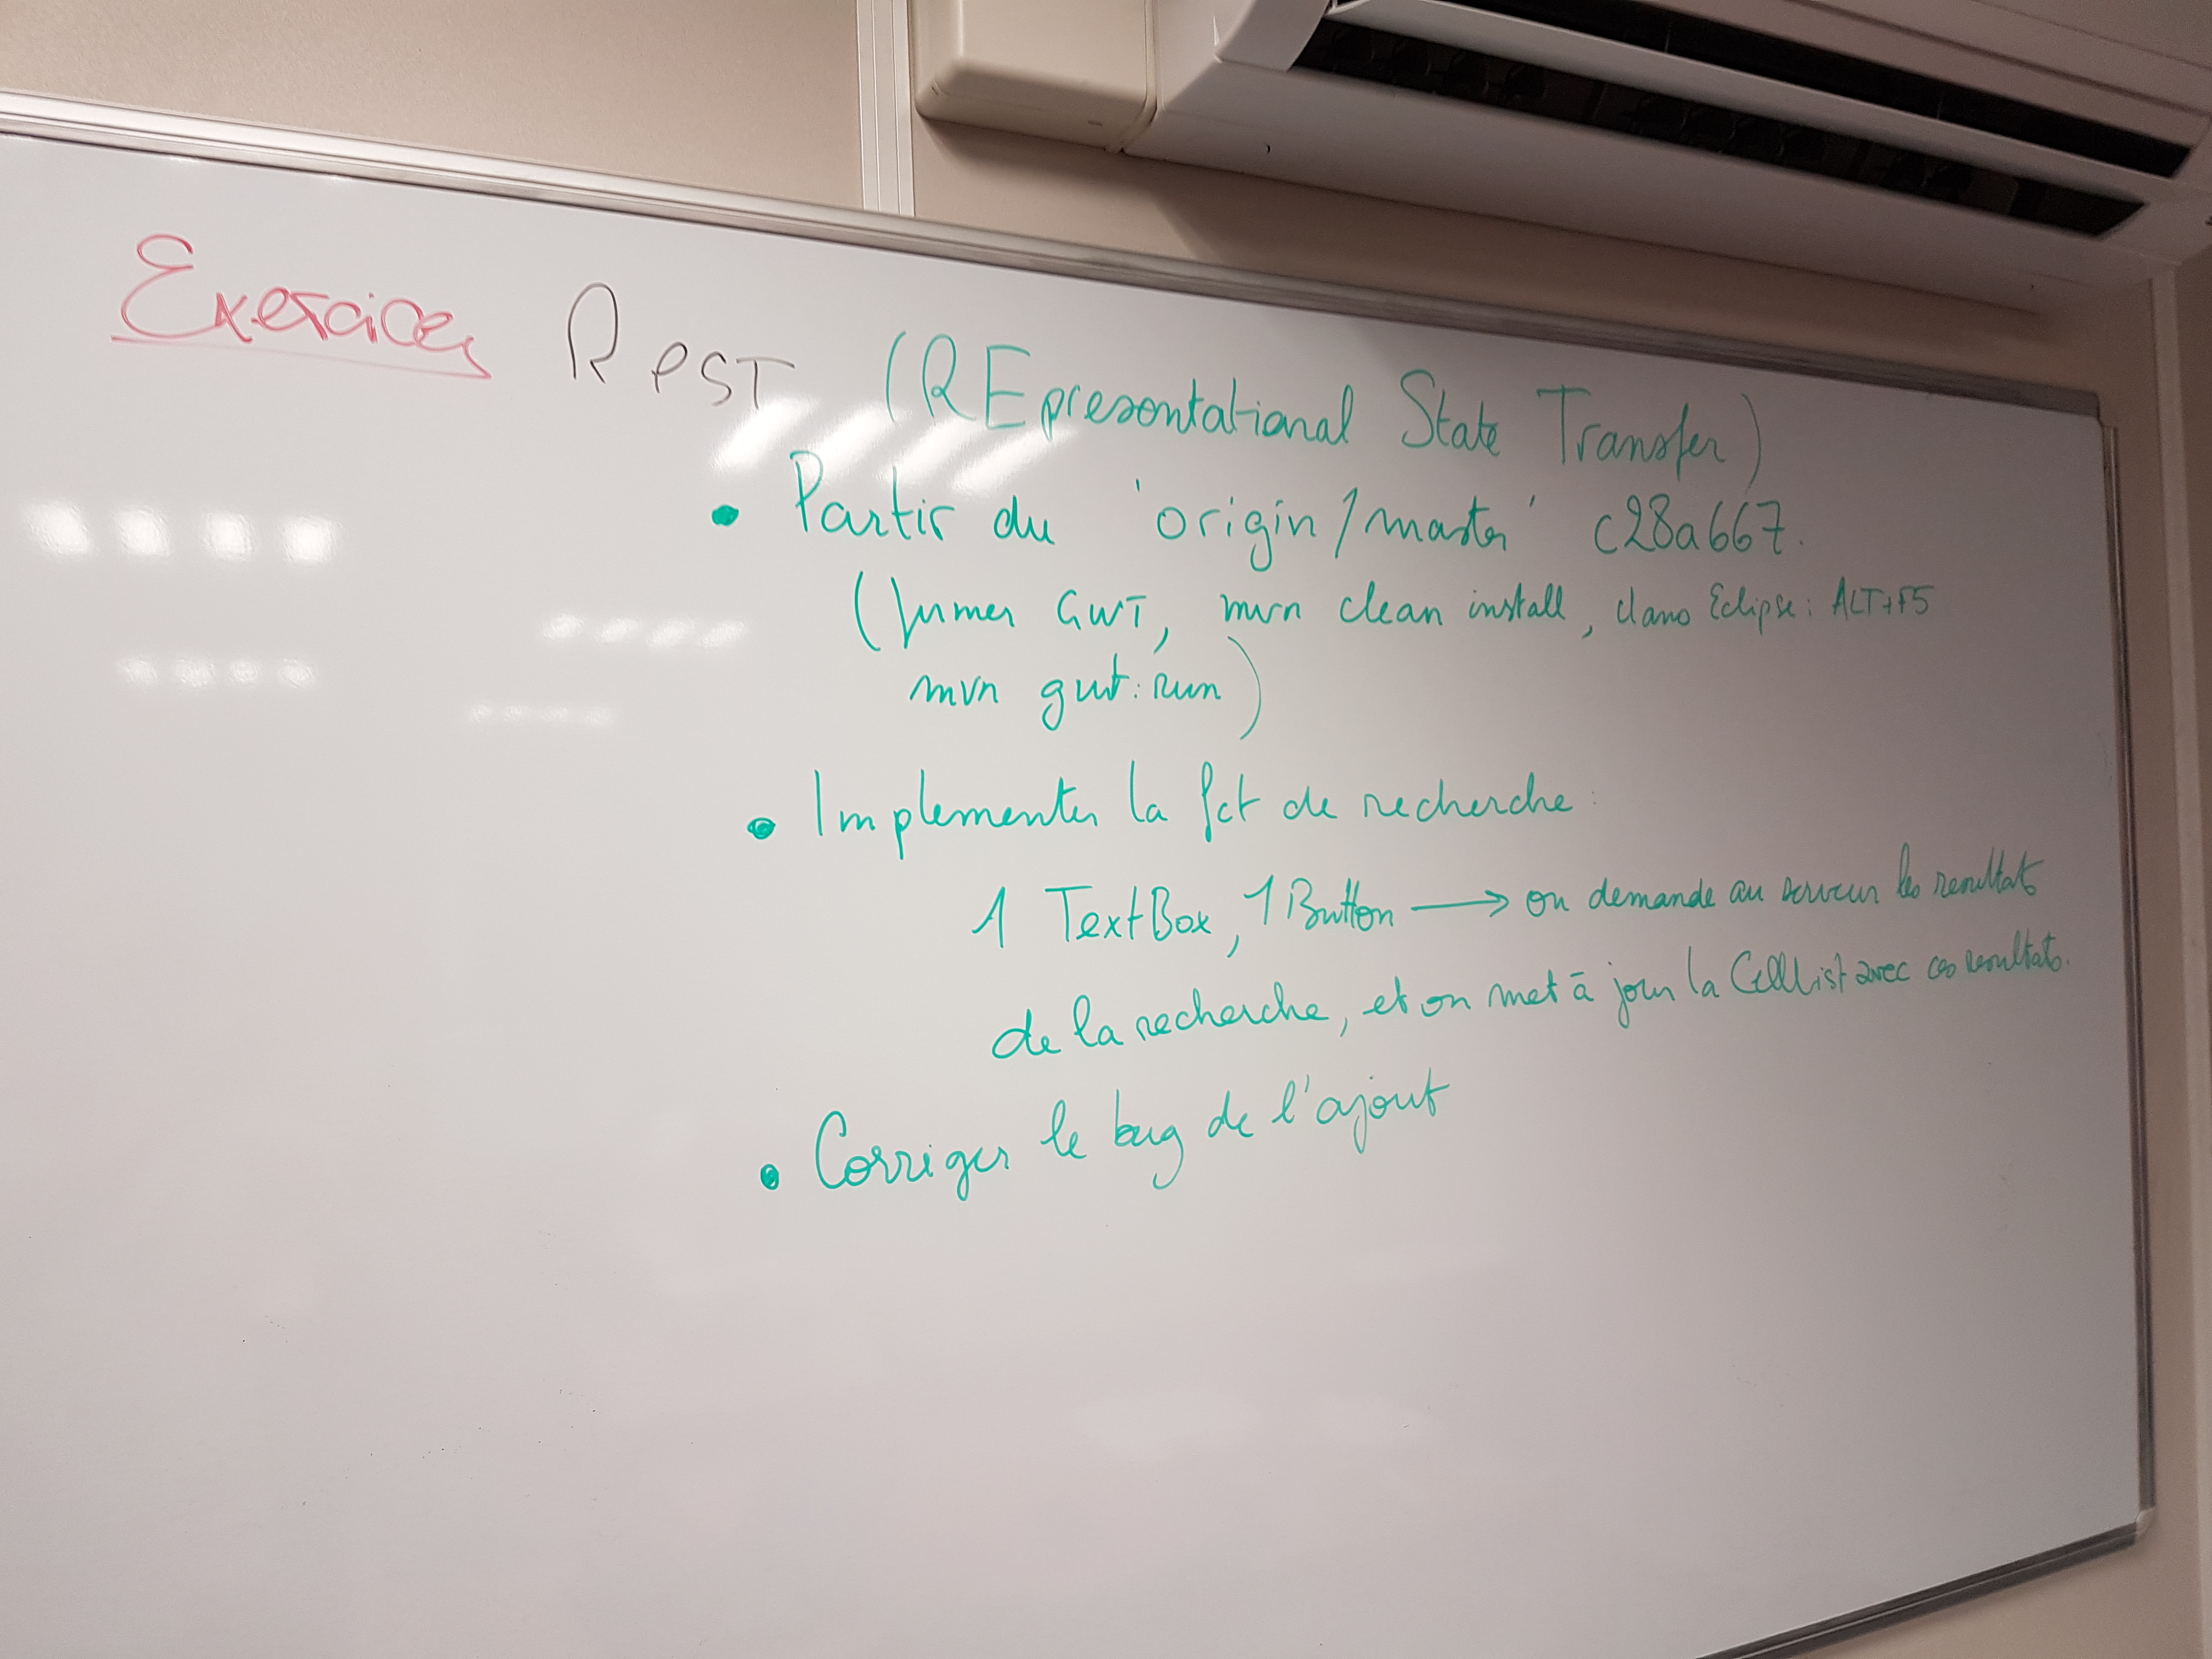 Exercices Rest (REpresentational State Transfer)
• Partir du 'origin/master' c28a667.
(fermer GWT, mvn clean install, dans Eclipse: ALT+F5
mvn gwt:run)
• Implementer la fct de recherche:
1 TextBox, 1 Button → on demande au serveur les resultats
de la recherche, et on met à jour la CellList avec ces resultats.
• Corriger le bug de l'ajout